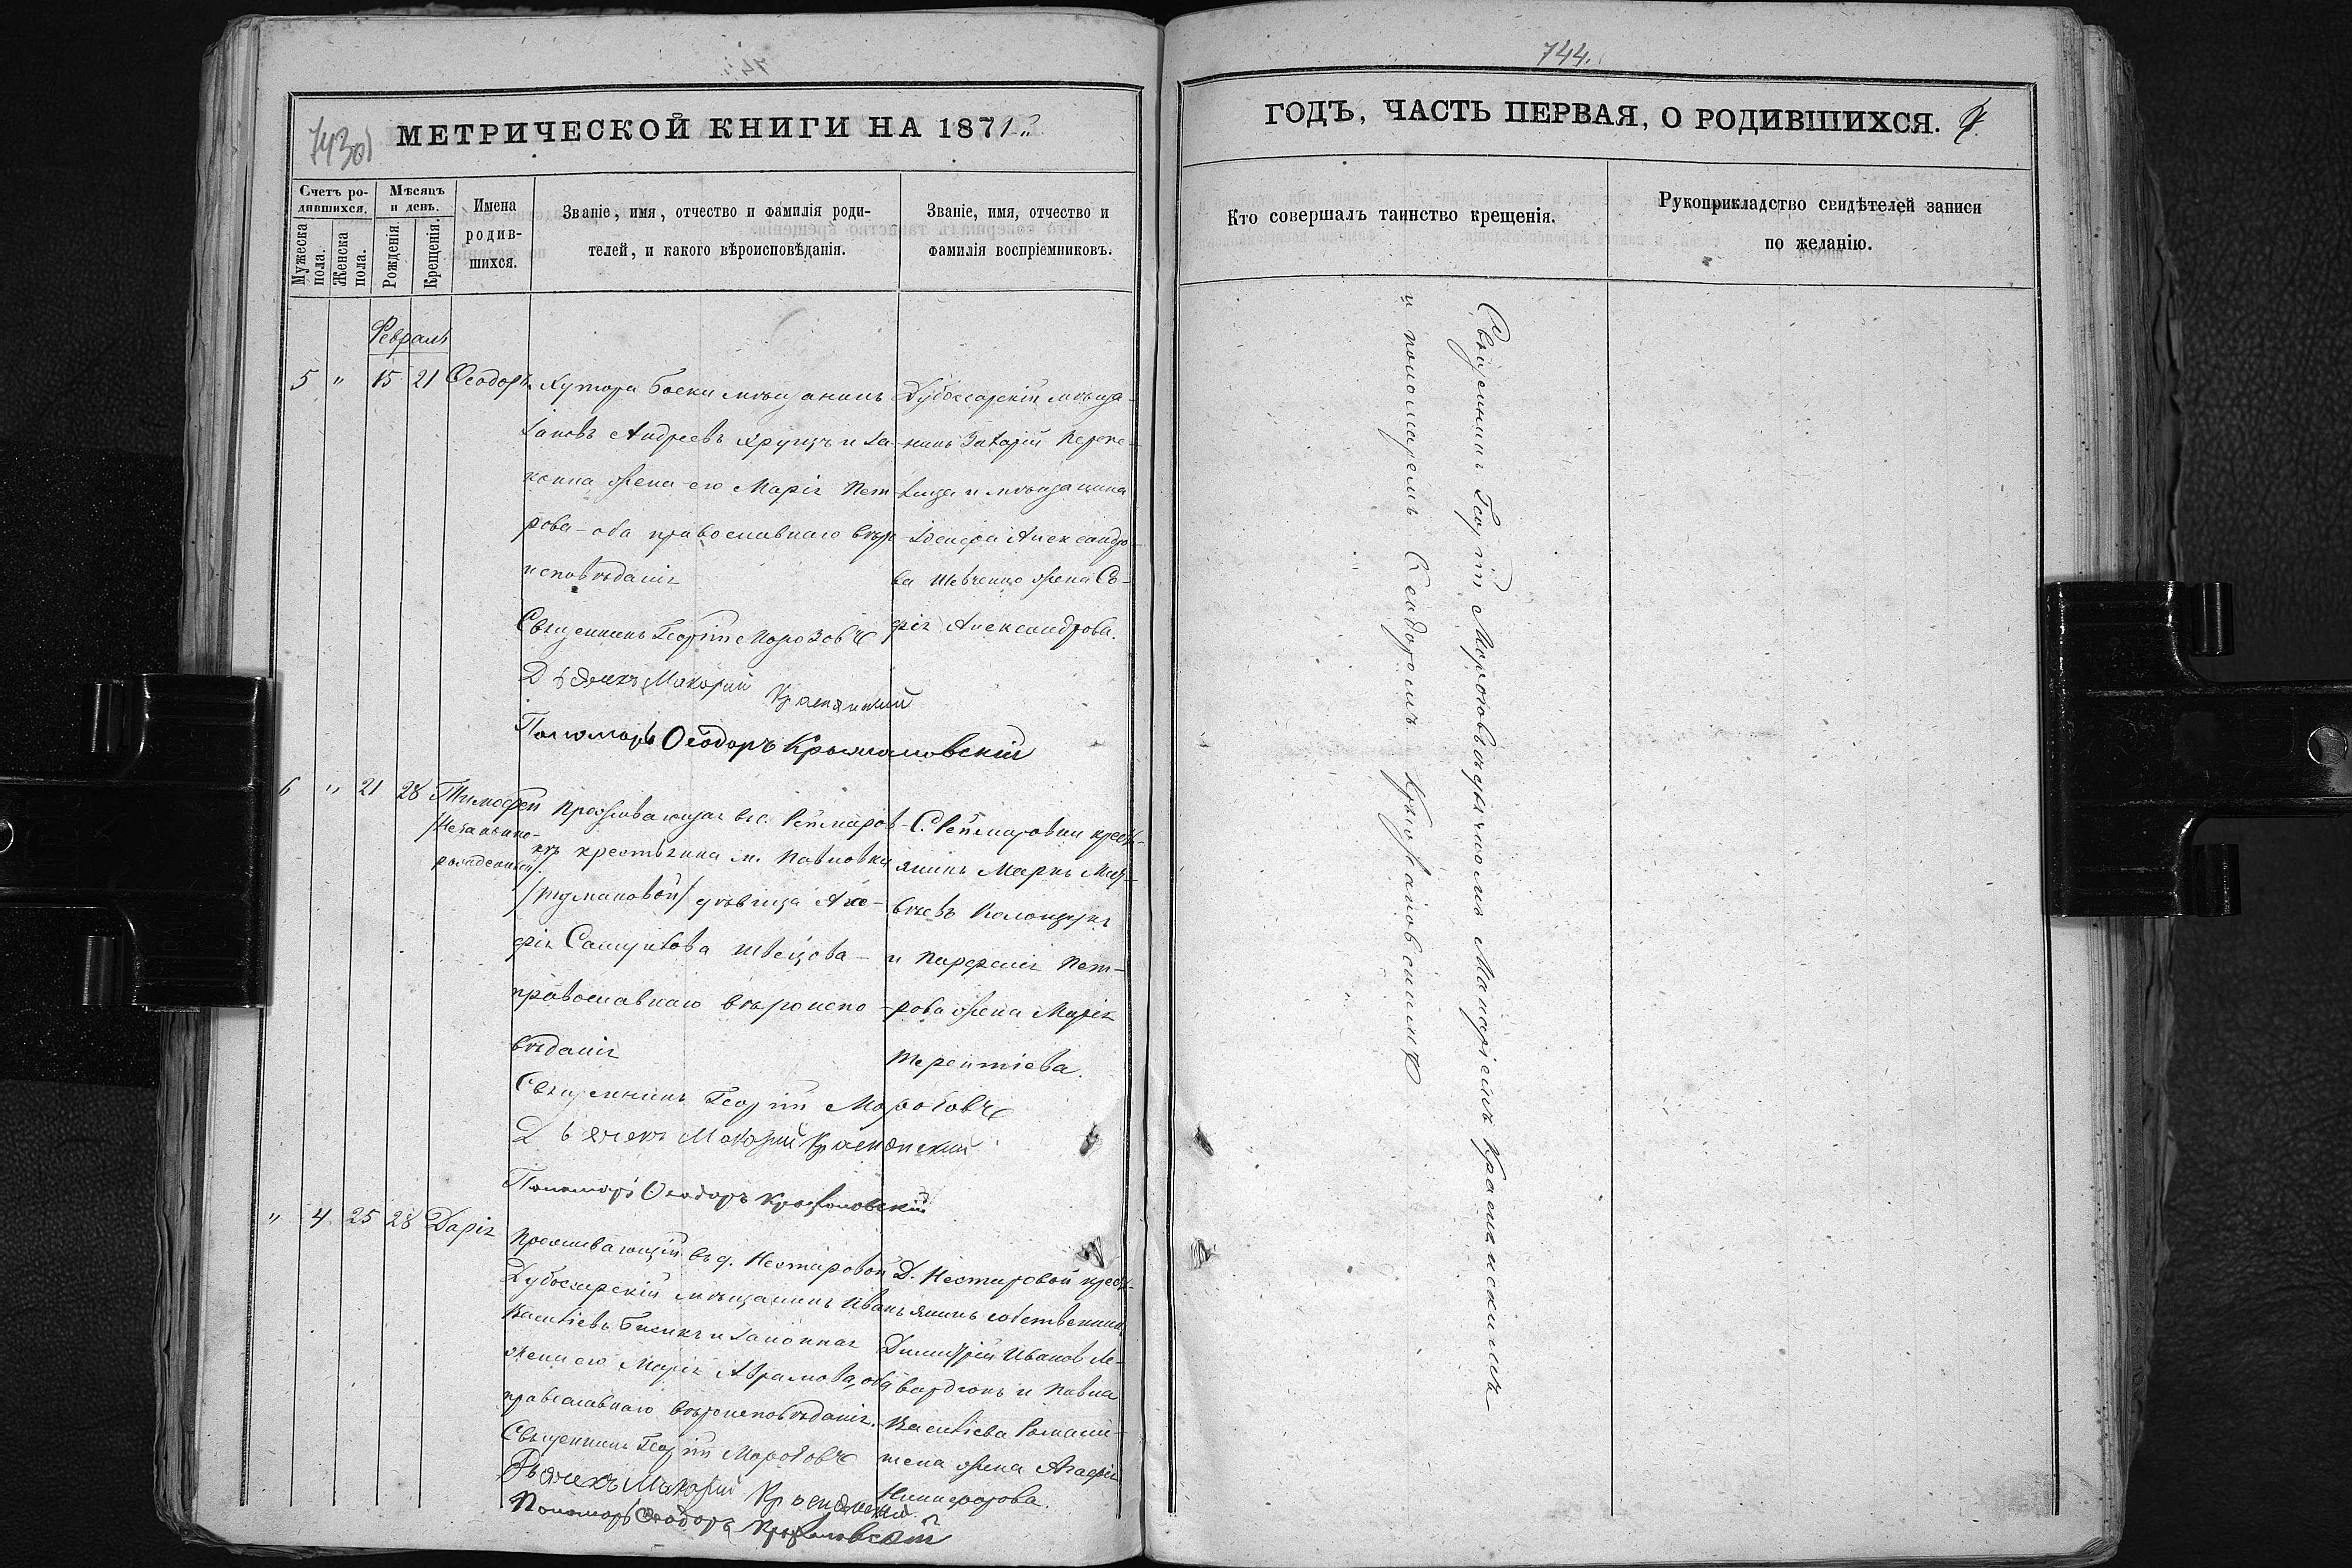 743об
МЕТРИЧЕСКОЙ КНИГИ НА 1871.
Счетъ ро-
дившихся.
Мѣсяцъ
и день.
Мужеска
пола.
Женска
пола.
Рожденія.
Крещенія.
Имена
родив-
шихся.
Званіе, имя, отчество и фамилія роди-
телей, и какого вѣроисповѣданія.
Званіе, имя, отчество и
фамилія воспріемниковъ.
Февраль
5 " 15 21 Ѳеодоръ
Хутора Боски мѣщанинъ
Іаковъ Андреевъ и за-
конна жена его Марія Пет-
рова - оба православнаго вѣро
исповѣданія
Священникъ Георгій Морозовъ
Дьячекъ Макарій
Пономарь Ѳеодоръ
Дубоссарскій мѣща-
нинъ Захарій
и мѣщанина
Іосифа Александро-
ва Шевченко жена Со-
фія Александрова.
6 " 21 28 Тимофей
/Незаконно-
рожденный/
Проживающая въ с. Реймаров-
кѣ крестьянка м. Павловки
дѣвица Ага-
фія Самуилова Швецова -
православнаго вѣроиспо-
вѣданія
Священникъ Георгій Морозовъ
Дьячекъ Макарій
Пономарь Ѳеодоръ
С. Реймаровки кресть-
янинъ Марко Мат-
вѣевъ
и Парфенія Пет-
рова жена Марія
Терентіева.
" 4 25 28 Дарія
Проживающій въ д. Нестаровой
Дубоссарскій мѣщанинъ Иванъ
Василіевъ и законная
жена его Марія Аврамова, оба
православнаго вѣроисповѣданія.
Священникъ Георгій Морозовъ
Дьячекъ Макарій
Пономарь Ѳеодоръ
Д. Нестаровой кресть-
янинъ собственникъ
Димитрій Иванов
и Павла
Василіева
жена Агафія
Никифорова.
744.
ГОДЪ, ЧАСТЬ ПЕРВАЯ, О РОДИВШИХСЯ.
Кто совершалъ таинство крещенія.
Рукоприкладство свидѣтелей записи
по желанію.
Священникъ Георгій Морозовъ съ дьячкомъ Макаріемъ
и пономаремъ Ѳеодоромъ